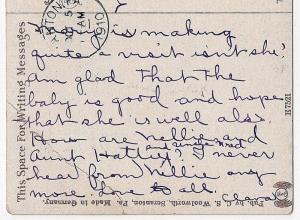 is making
quite a visit isn't she.
am glad that the
baby is good and hope
that she is well also.
How are Nellie and
Aunt Hatty, and uncle
I never
hear from Nellie any
more. Love to all.
Clara
This Space For Writing Messages
Pub. by C. S. Woolworth, Scranton, Pa. Made in Germany.